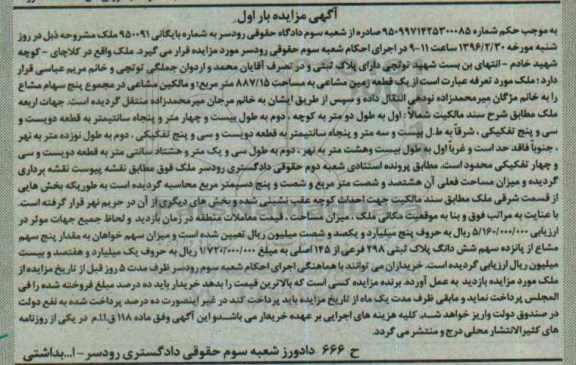 آگهی مزایده بار اول
به موجب حکم شماره ۹۵۰۹۹۷۱۴۲۵۳۰۰۰۸۵ صادره از شعبه سوم دادگاه حقوقی رودسر به شماره بایگانی ۹۵۰۰۹۱ ملک مشروحه ذیل در روز
شنبه مورخه ۱۳۹۶/۲/۳۰ ساعت ۱۱-۹ در اجرای احکام شعبه سوم حقوقی رودسر مورد مزایده قرار می گیرد. ملک واقع در کلاچای - کوچه
شهید خادم - انتهای بن بست شهید توتچی دارای پلاک ثبتی و در تصرف آقایان محمد و اردوان جملگی توتچی و خانم مریم عباسی قرار
دارد؛ ملک مورد تعرفه عبارت است از یک قطعه زمین مشاعی به مساحت ۸۸۷/۱۵ متر مربع؛ و مالکین مشاعی در مجموع پنج سهام مشاع
را به خانم مژگان میرمحمدزاده نودهی انتقال داده و سپس از طریق ایشان به خانم مرجان میرمحمدزاده منتقل گردیده است. جهات اربعه
ملک مطابق شرح سند مالکیت شمالاً : اول به طول دو متر به کوچه ، دوم به طول بیست و چهار متر و پنجاه سانتیمتر به قطعه دویست و
سی و پنج تفکیکی ، شرقاً به طول بیست و سه متر و پنجاه سانتیمتر به قطعه دویست و سی و پنج تفکیکی ، دوم به طول نوزده متر به نهر
، جنوباً فاقد حد است و غرباً اول به طول بیست و هشت متر به نهر ، دوم به طول سی و یک متر و هشتاد سانتی متر به قطعه دویست و سی
و چهار تفکیکی محدود است. مطابق پرونده استنادی شعبه دوم حقوقی دادگستری رودسر ملک فوق مطابق نقشه پیوست نقشه برداری
گردیده و میزان مساحت فعلی آن هشتصد و شصت متر مربع و شصت و پنج دسیمتر مربع محاسبه گردیده است به طوریکه بخش هایی
از قسمت شرقی ملک مطابق سند مالکیت جهت احداث کوچه عقب نشینی شده و بخش های دیگری از آن در حریم نهر قرار گرفته است.
با عنایت به مراتب فوق و بنا به موقعیت مکانی ملک ، میزان مساحت ، قیمت معاملات منطقه در زمان بازدید و لحاظ جمیع جهات موثر در
ارزیابی ۵/۱۶۰/۰۰۰/۰۰۰ ریال به حروف پنج میلیارد و یکصد و شصت میلیون ریال تعیین شده است و میزان سهم خواهان به مقدار پنج سهم
مشاع از پانزده سهم شش دانگ پلاک ثبتی ۲۹۸ فرعی از ۱۴۵ اصلی به مبلغ ۱/۷۲۰/۰۰۰/۰۰۰ ریال به حروف یک میلیارد و هفتصد و بیست
میلیون ریال ارزیابی گردیده است. خریداران می توانند با هماهنگی اجرای احکام شعبه سوم رودسر ظرف مدت ۵ روز قبل از تاریخ مزایده از
ملک مورد مزایده بازدید به عمل آورد. برنده مزایده کسی است که بالاترین قیمت را بدهد خریدار باید ده درصد مبلغ فروخته شده را فی
المجلس پرداخت نماید و مابقی ظرف مدت یک ماه از تاریخ مزایده باید پرداخت کند در غیر اینصورت ده درصد پرداخت شده به نفع دولت
در صندوق دولت واریز خواهد شد. کلیه هزینه های اجرایی بر عهده خریدار می باشد و این آگهی وفق ماده ۱۱۸ ق.ا.ا.م در یکی از روزنامه
های کثیرالانتشار محلی درج و منتشر می گردد.
ح ۶۶۶ دادورز شعبه سوم حقوقی دادگستری رودسر - ا...بداشتی